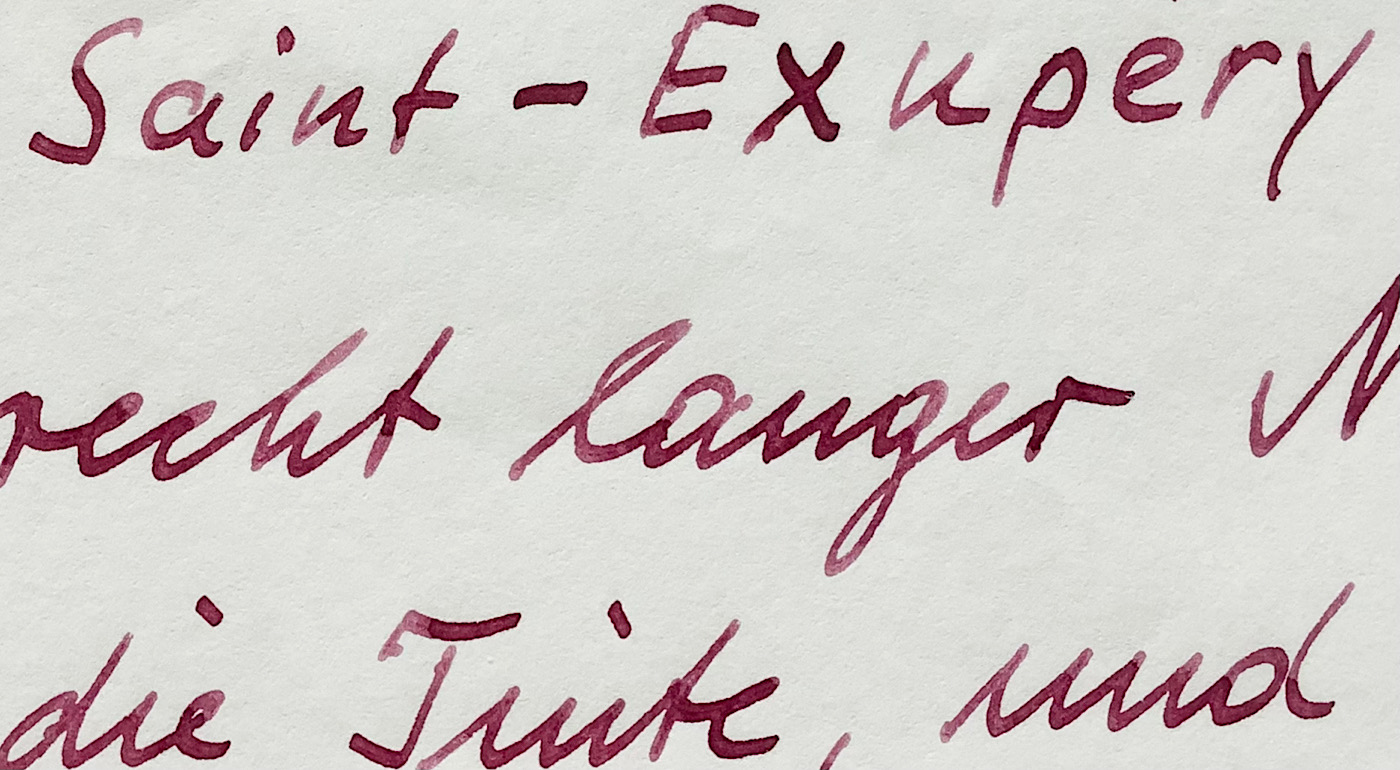 Saint-Exupéry
recht langer N
die Tinte, und